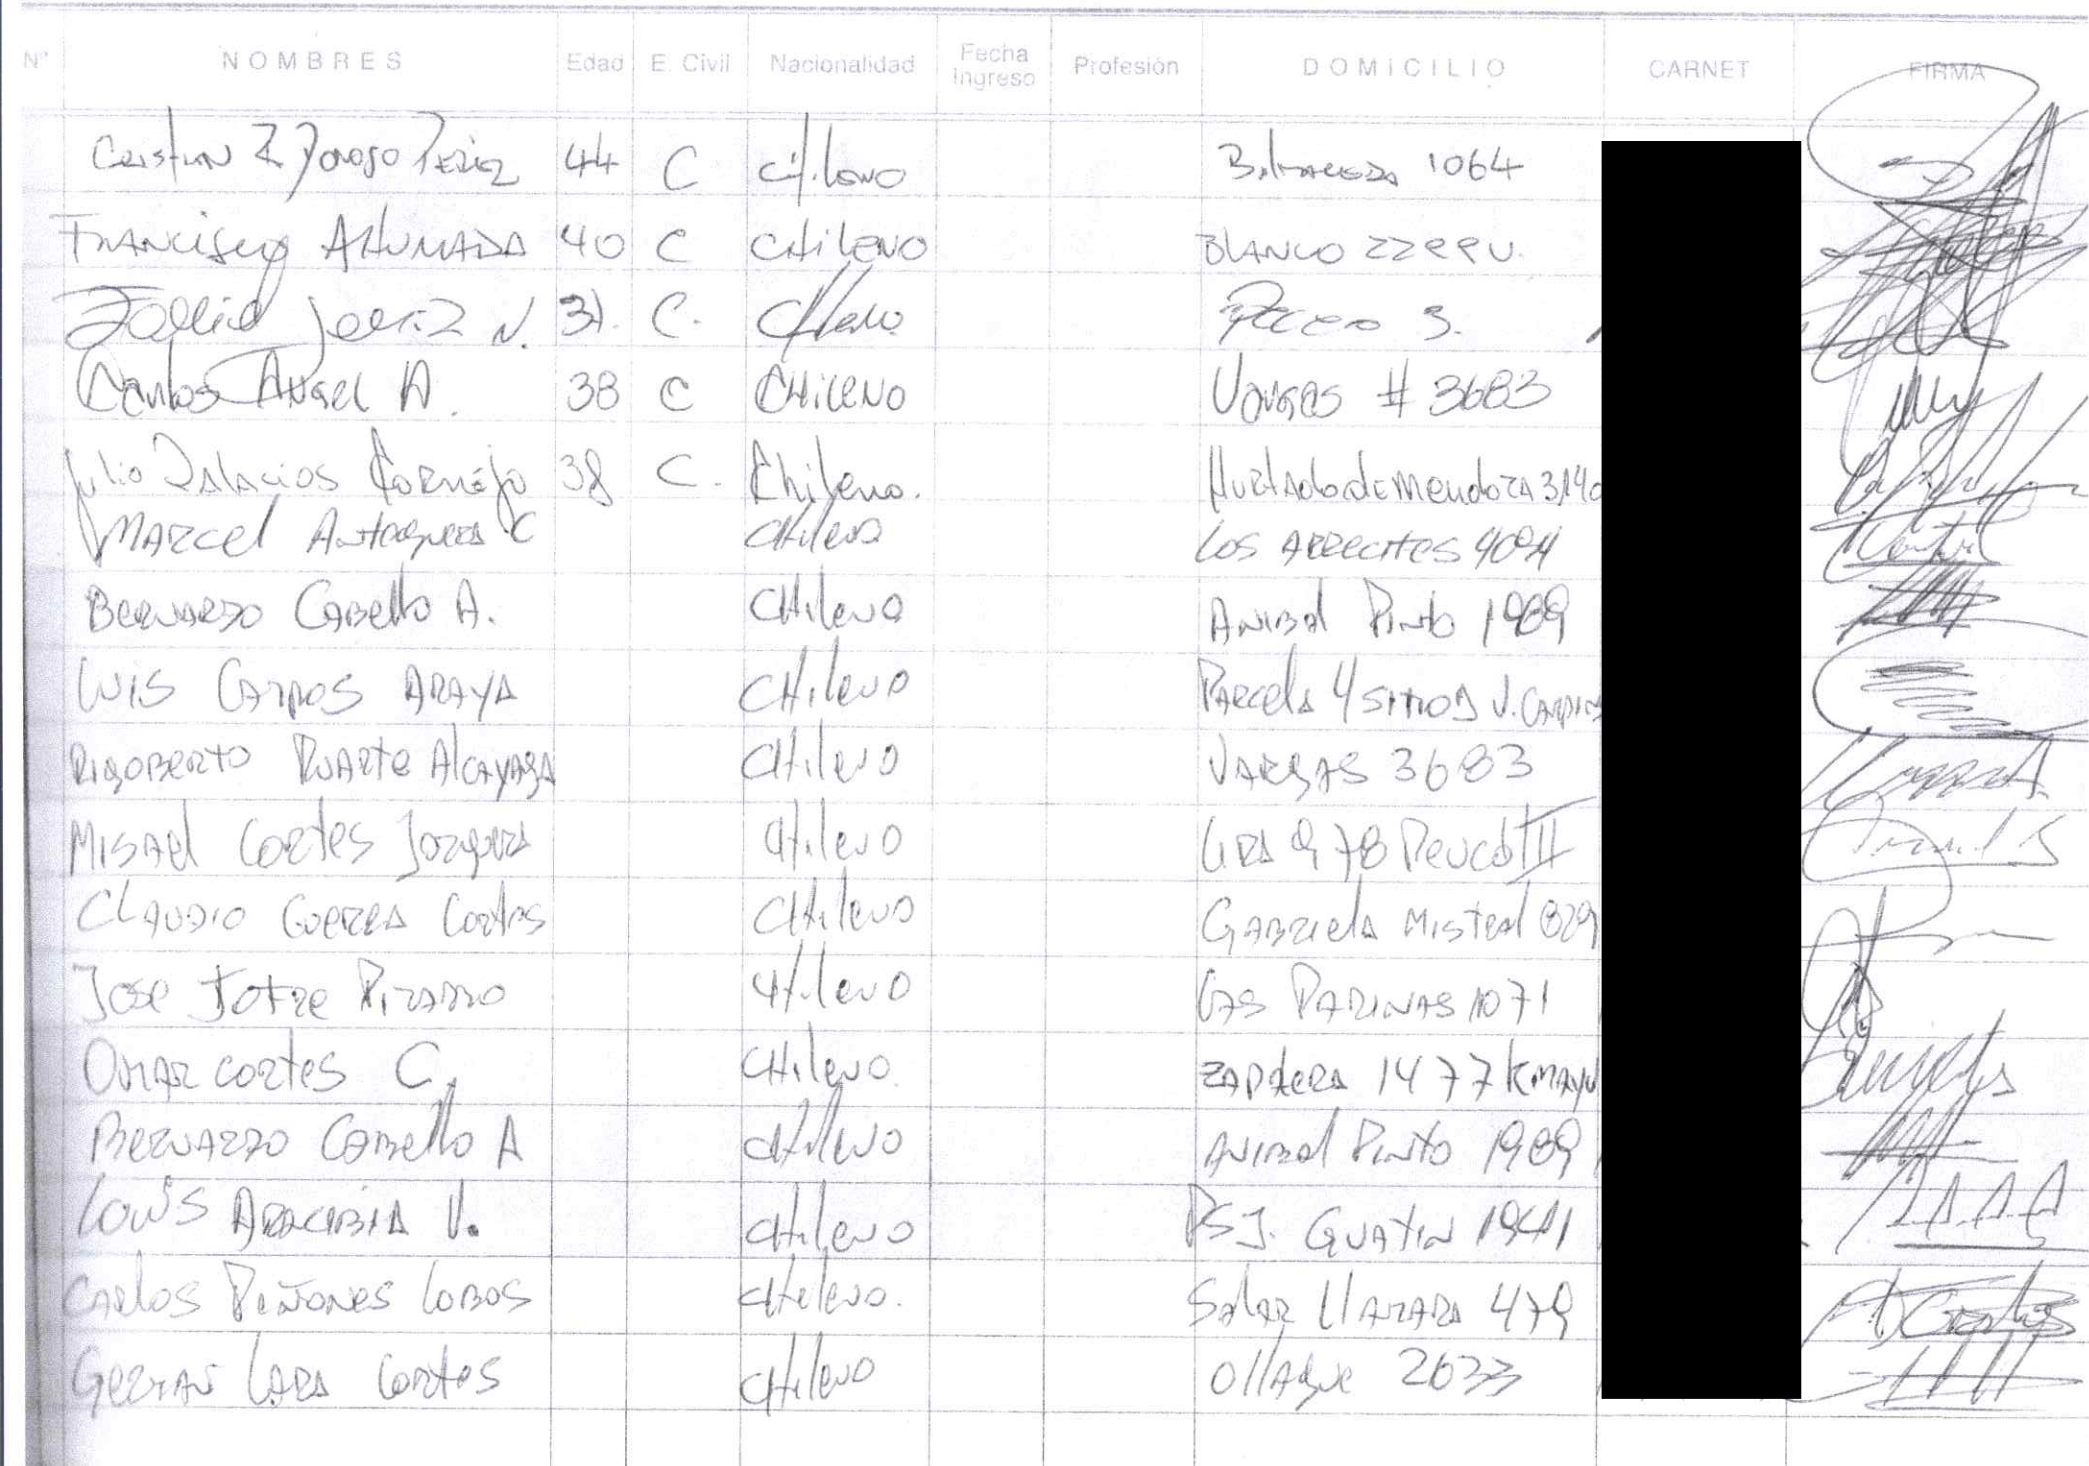 Nº NOMBRES Edad E. Civil Nacionalidad Fecha Ingreso Profesión DOMICILIO CARNET FIRMA
Cristian Donoso Perez 44 C Chileno Balmaceda 1064
Francisco AHUMADA 40 C CHILENO BLANCO
Jerez N. 31. C. Chileno 3.
Carlos Angel A. 38 C CHILENO Vargas # 3683
Julio Palacios Cornejo 38 C. Chileno. Hurtado de Mendoza 3140
MARCEL Antequera C CHileno Los ARRECifes 4094
BERNARDO CABello A. CHileno ANIBAL Pinto 1989
LUIS CAMPOS ARAYA CHileno PARCela 4 SITIO
RIGOBERTO DUARTE AlCAYAGA CHileno VARGAS 3683
MISAel CORTes JORquera CHileno LIRA 978 Peuco III
CLAUDIO GUERRA Cortes CHileno GABRIela MISTRAL 829
Jose JOFRE PIZARRO CHileno LAS PARINAS 1071
OMAR CORTes C. CHileno. 1477
BERNARDO CABello A CHileno ANIBAL Pinto 1989
LOUIS ARACIBIA V. CHileno PSJ. GUATIN 1941
CARLOS PIÑONES LOBOS CHileno. SALAR 479
GERMAN LARA CORTES CHileno OllAgue 2633